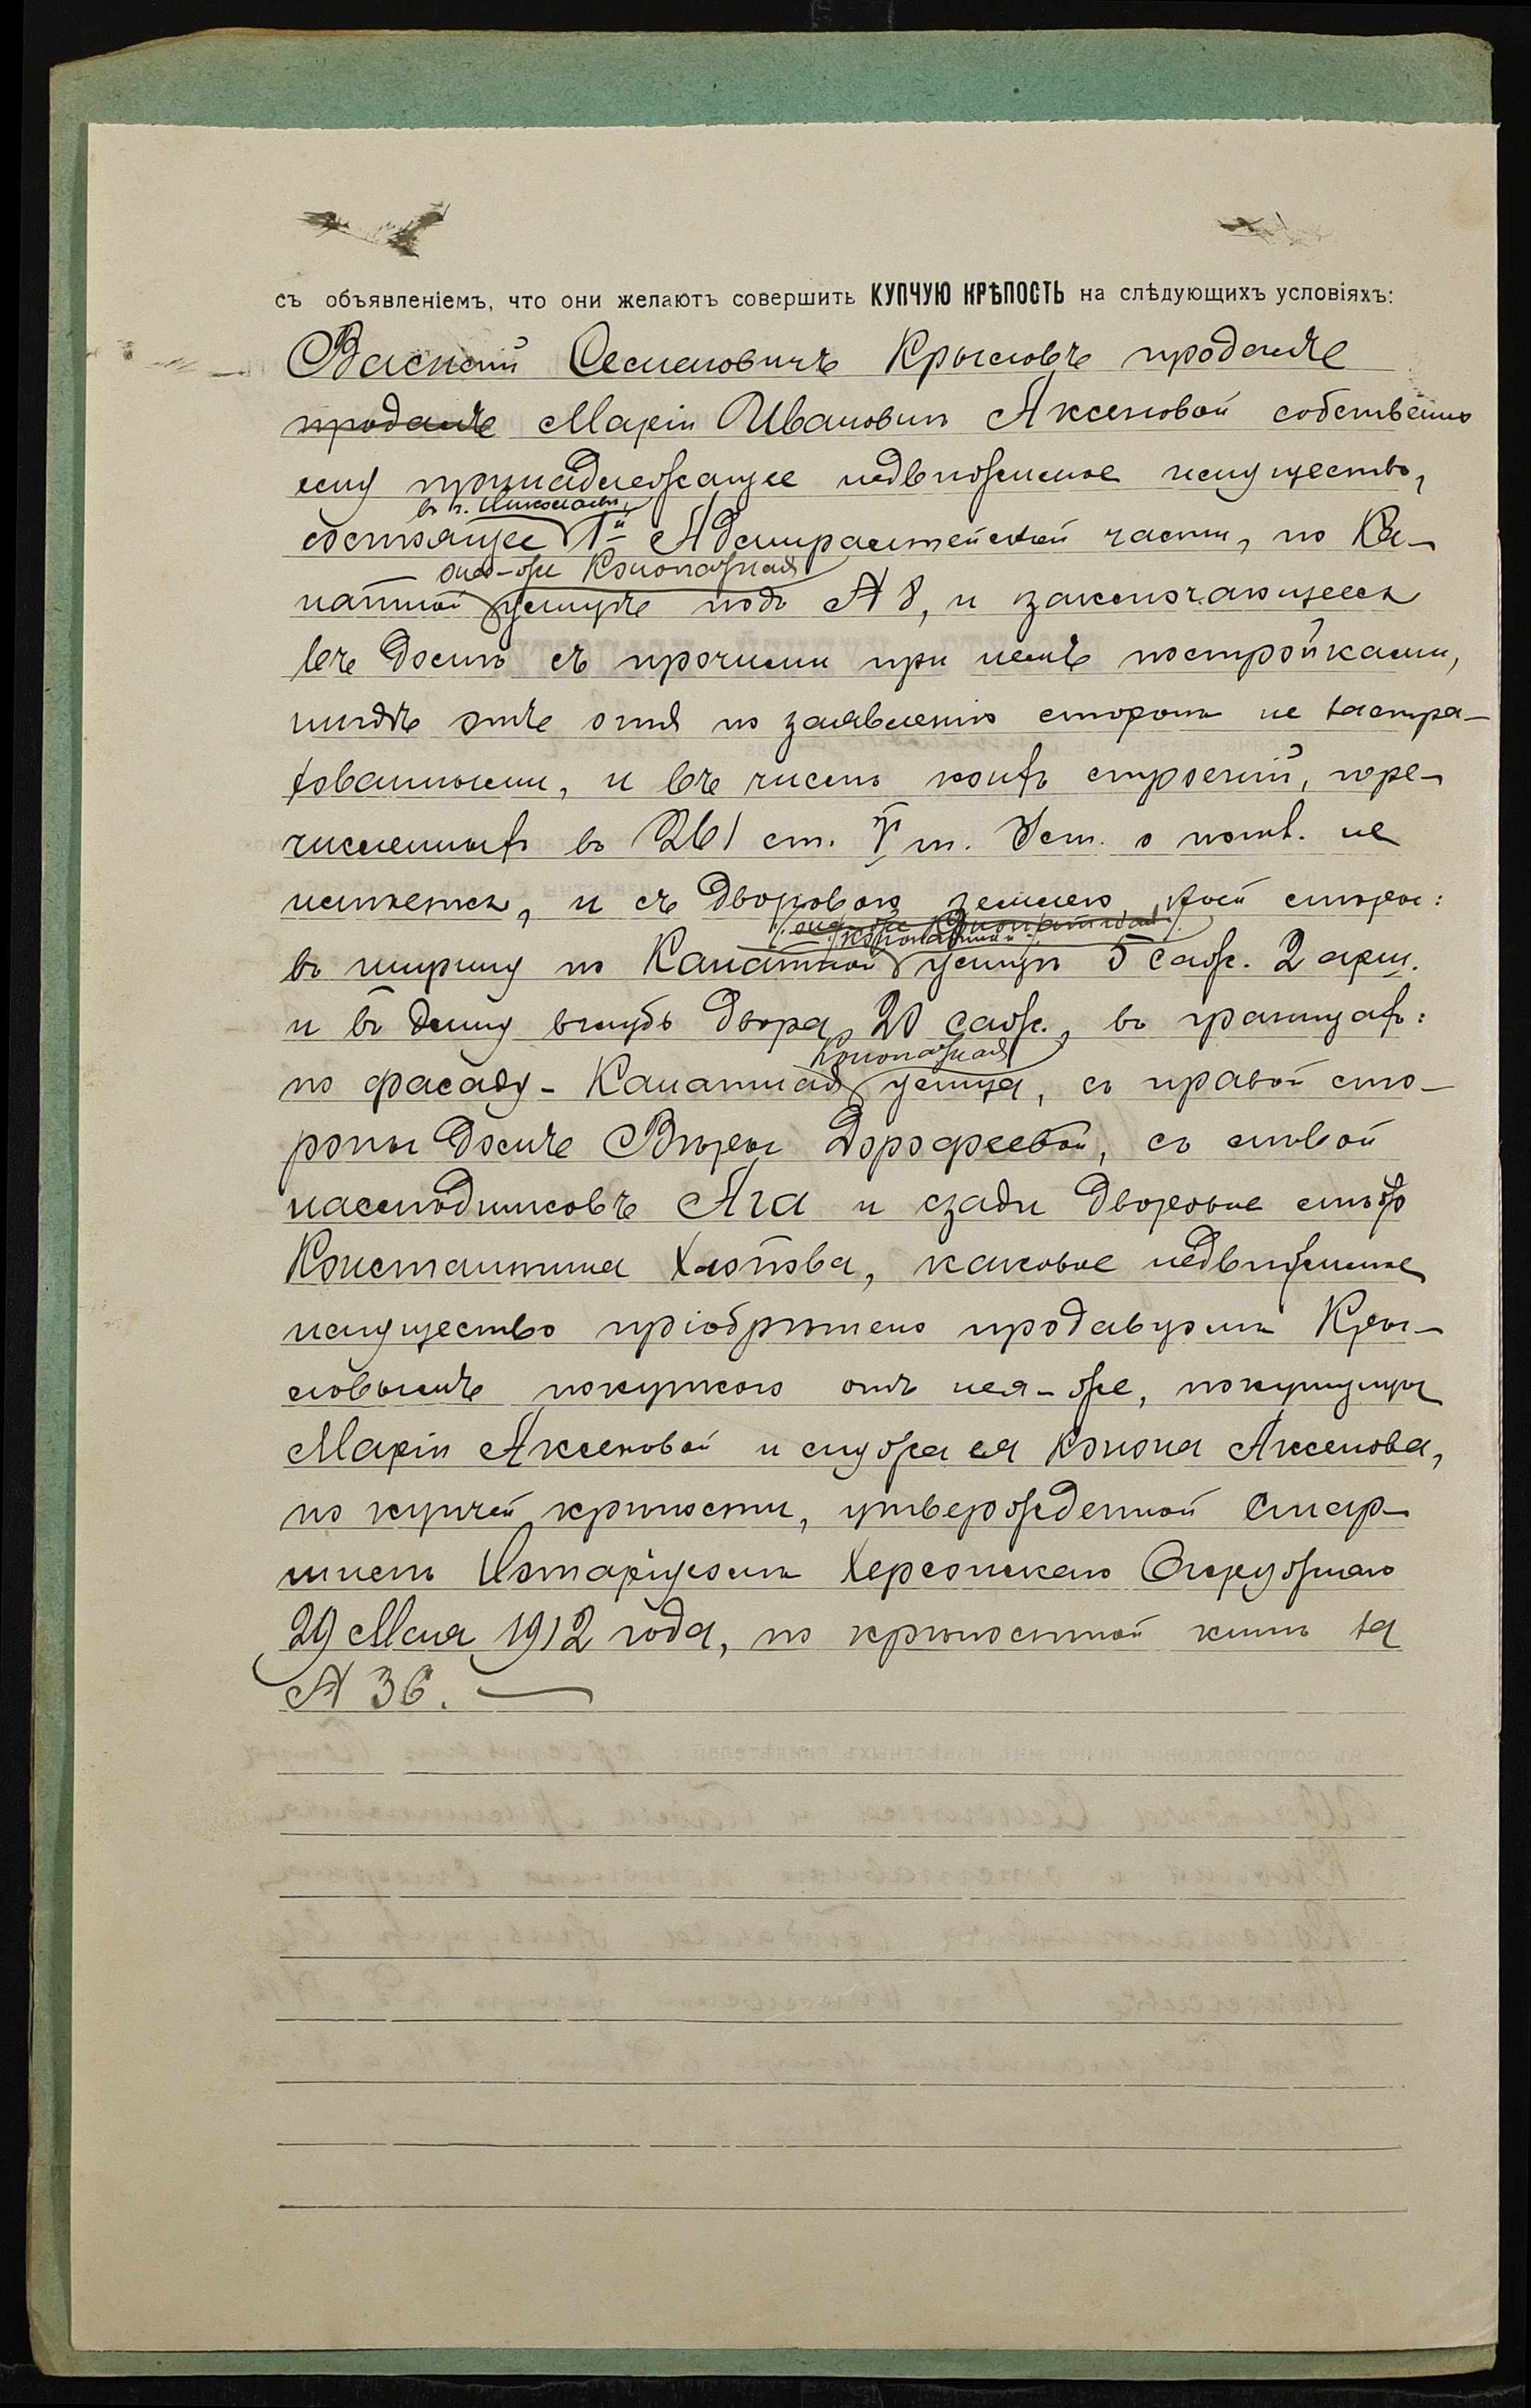 съ объявленіемъ, что они желаютъ совершить КУПЧУЮ КРѢПОСТЬ на слѣдующихъ условіяхъ:
Василій Семеновичъ Крысловъ продалъ
продалъ Маріи Ивановнѣ Аксеновой собственно
ему принадлежащее недвижимое имущество,
въ г. Николаевѣ,
состоящее 1й Адмиралтейской части, по Ка-
она-же Конопатная
натной улицѣ подъ № 8, и заключающееся
въ домѣ съ прочими при немъ постройками,
нигдѣ отъ огня по заявленію сторонъ не застра-
хованными, и въ числѣ коихъ строеній, пере-
численныхъ въ 261 ст. V т. Уст. о пошл. не
имѣется, и съ дворовою землею, коей мѣры:
она-же Конопатная
Конопатной
въ ширину по Канатной улицѣ 5 саж. 2 арш.
и въ длину вглубь двора 20 саж., въ границахъ:
Конопатная
по фасаду - Канатная улица, съ правой сто-
роны домъ Вѣры Дорофеевой, съ лѣвой
наслѣдниковъ Яга и сзади дворовое мѣсто
Константина Хлопова, каковое недвижимое
имущество пріобрѣтено продавцомъ Кры-
словымъ покупкою отъ нея-же, покупщицы
Маріи Аксеновой и мужа ея Конона Аксенова,
по купчей крѣпости, утвержденной Стар-
шимъ Нотаріусомъ Херсонскаго Окружнаго
29 Мая 1912 года, по крѣпостной книгѣ за
№ 36.